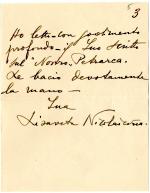 3
Ho letto con godimento
profondo il Suo scritto
sul "Nuovo Petrarca.
Le bacio devotamente
la mano —
Sua